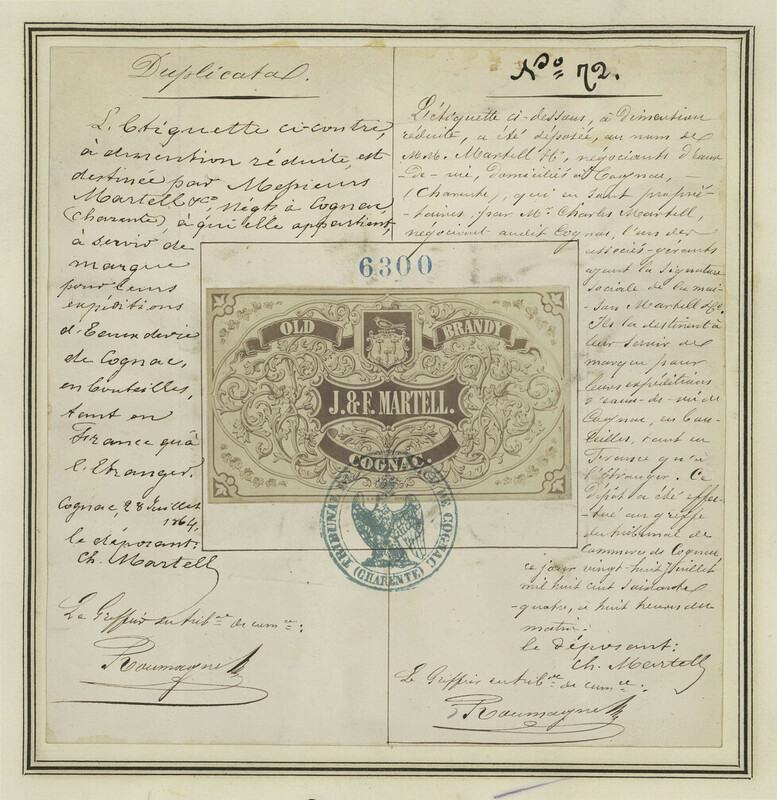 Duplicata.
L'Etiquette ci-contre,
à dimention réduite, est
destinée par Messieurs
Martell & Co, Négts à Cognac
(Charente), à qui elle appartient,
à servir de
marque
pour leurs
expéditions
d'Eaux de vie
de Cognac,
en bouteilles,
tant en
France qu'à
l'Etranger.
Cognac, 28 Juillet
1864,
le déposant:
Ch. Martell
Le Greffier du trib.al de com.ce:
Roumagne
No 72.
L'étiquette ci-dessous, à dimention
réduite, a été déposée, au nom de
M.M. Martell & Co, négociants d'Eaux-
-de-vie, domiciliés à Cognac,
(Charente), qui en sont proprié-
-taires, par Mr. Charles Martell,
négociant audit Cognac, l'un des
associés-gérants
ayant la signature
sociale de la mai-
-son Martell & Co.
Ils la destinent à
leur servir de
marque pour
leurs expéditions
d'eaux-de-vie de
Cognac, en bou-
teilles, tant en
France qu'à
l'étranger. Ce
dépôt a été effec-
-tué au greffe
du tribunal de
Commerce de Cognac,
ce jour vingt-huit Juillet
mil huit cent soixante
-quatre, à huit heures du
matin.
le déposant:
Ch. Martell
Le Greffier du trib.al de com.ce:
Roumagne
6300
OLD BRANDY
J. & F. MARTELL.
COGNAC.
TRIBUNAL DE COGNAC
(CHARENTE)